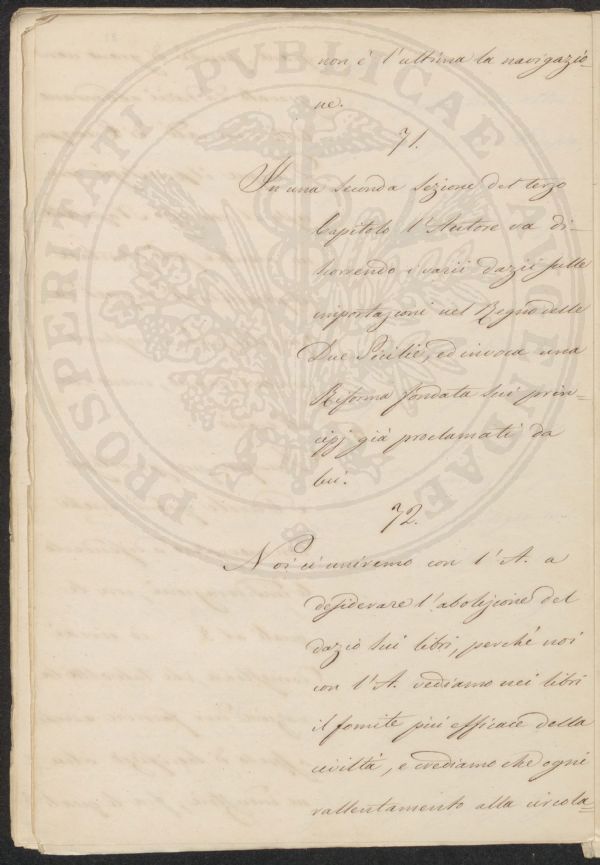 non è l'ultima la navigazio-
ne.
71.
In una seconda Sezione del terzo
Capitolo l'Autore va di-
scorrendo i varii dazii sulle
importazioni nel Regno delle
Due Sicilie, ed invoca una
Riforma fondata sui prin-
cipj già proclamati da
lui.
72.
Noi ci uniremo con l'A. a
desiderare l'abolizione del
dazio sui libri, perché noi
con l'A. vediamo nei libri
il fomite più efficace della
civiltà, e crediamo che ogni
rallentamento alla circola-
PROSPERITATI PUBLICAE AUGENDAE